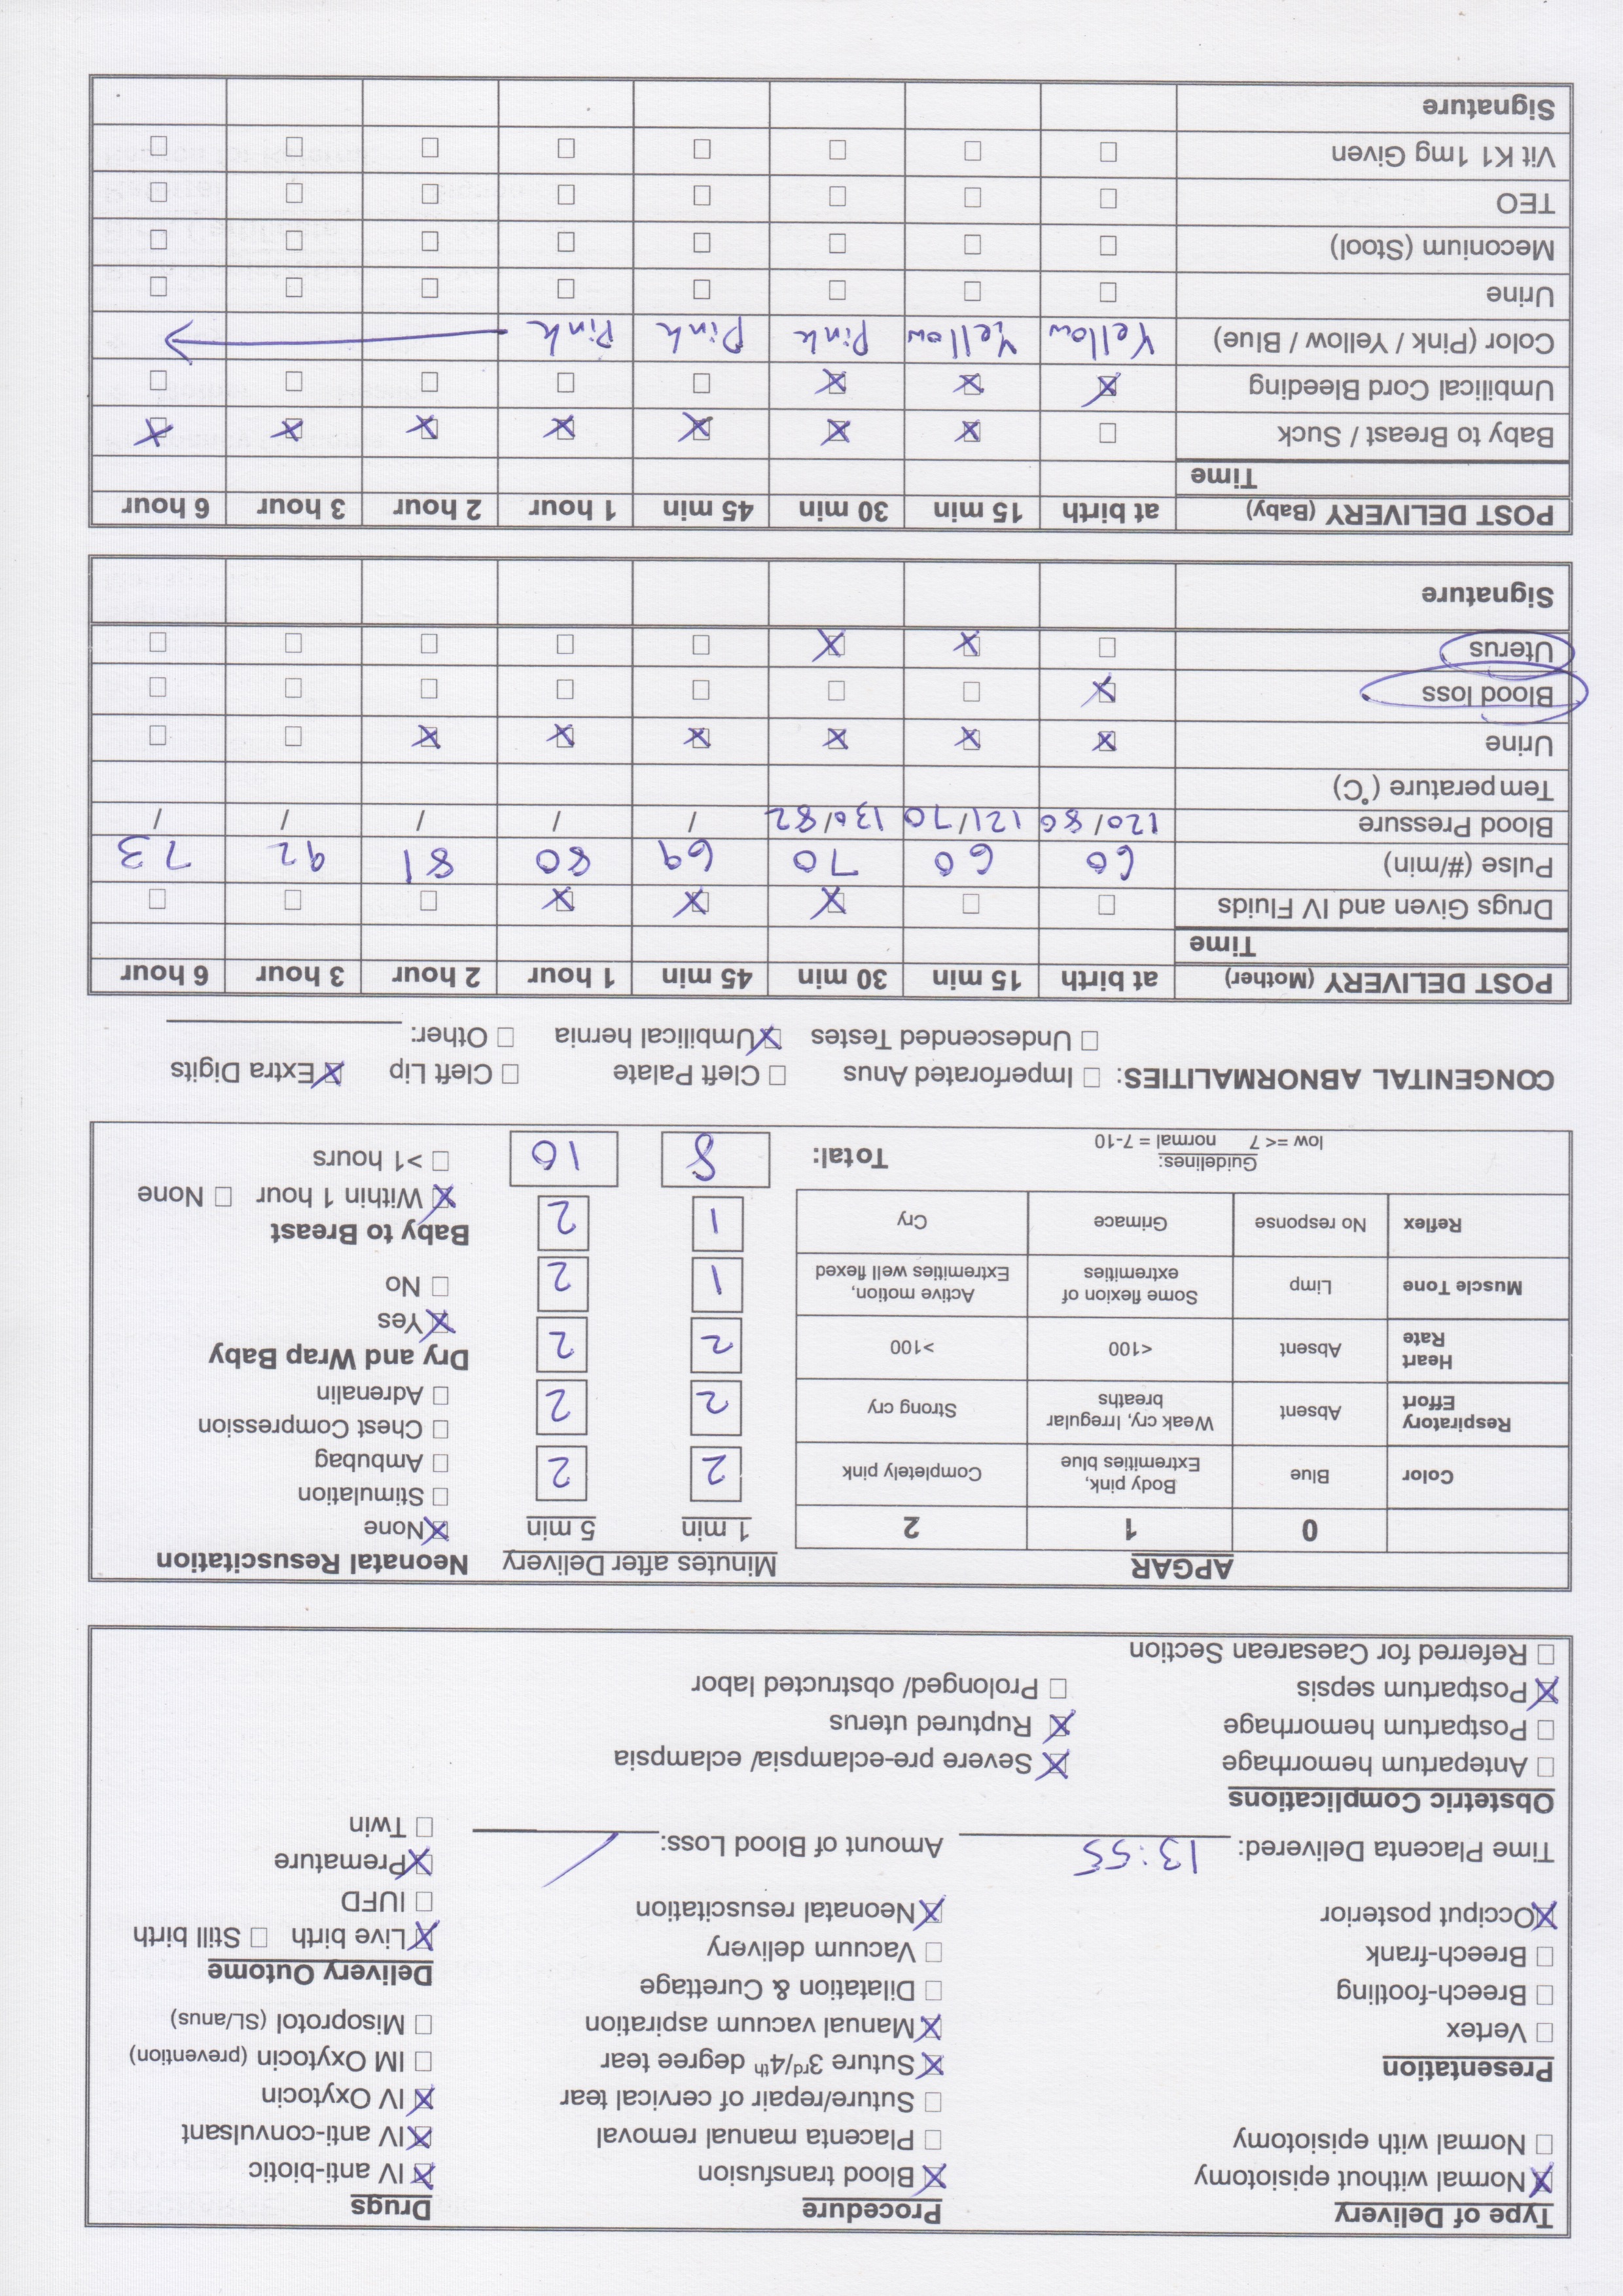 Type of Delivery
☒ Normal without episiotomy
☐ Normal with episiotomy
Presentation
☐ Vertex
☐ Breech-footling
☐ Breech-frank
☒ Occiput posterior
Procedure
☒ Blood transfusion
☐ Placenta manual removal
☐ Suture/repair of cervical tear
☒ Suture 3rd/4th degree tear
☒ Manual vacuum aspiration
☐ Dilatation & Curettage
☐ Vacuum delivery
☒ Neonatal resuscitation
Drugs
☒ IV anti-biotic
☒ IV anti-convulsant
☒ IV Oxytocin
☐ IM Oxytocin (prevention)
☐ Misoprotol (SL/anus)
Delivery Outome
☒ Live birth ☐ Still birth
☐ IUFD
☒ Premature
☐ Twin
Time Placenta Delivered: 13:55 Amount of Blood Loss: /
Obstetric Complications
☐ Antepartum hemorrhage ☒ Severe pre-eclampsia/ eclampsia
☐ Postpartum hemorrhage ☒ Ruptured uterus
☒ Postpartum sepsis ☐ Prolonged/ obstructed labor
☐ Referred for Caesarean Section
APGAR Minutes after Delivery
0 1 2 1 min 5 min
Color Blue Body pink, Extremities blue Completely pink 2 2
Respiratory Effort Absent Weak cry, Irregular breaths Strong cry 2 2
Heart Rate Absent <100 >100 2 2
Muscle Tone Limp Some flexion of extremities Active motion, Extremities well flexed 1 2
Reflex No response Grimace Cry 1 2
Guidelines:
low =< 7 normal = 7-10 Total: 8 10
Neonatal Resuscitation
☒ None
☐ Stimulation
☐ Ambubag
☐ Chest Compression
☐ Adrenalin
Dry and Wrap Baby
☒ Yes
☐ No
Baby to Breast
☒ Within 1 hour ☐ None
☐ >1 hours
CONGENITAL ABNORMALITIES: ☐ Imperforated Anus ☐ Cleft Palate ☐ Cleft Lip ☒ Extra Digits
☐ Undescended Testes ☒ Umbilical hernia ☐ Other:
POST DELIVERY (Mother) at birth 15 min 30 min 45 min 1 hour 2 hour 3 hour 6 hour
Time
Drugs Given and IV Fluids ☐ ☐ ☒ ☒ ☒ ☐ ☐ ☐
Pulse (#/min) 60 60 70 69 80 81 92 73
Blood Pressure 120/80 121/70 130/82 / / / / /
Temperature (°C)
Urine ☒ ☒ ☒ ☒ ☒ ☒ ☐ ☐
Blood loss ☒ ☐ ☐ ☐ ☐ ☐ ☐ ☐
Uterus ☐ ☒ ☒ ☐ ☐ ☐ ☐ ☐
Signature
POST DELIVERY (Baby) at birth 15 min 30 min 45 min 1 hour 2 hour 3 hour 6 hour
Time
Baby to Breast / Suck ☐ ☒ ☒ ☒ ☒ ☒ ☒ ☒
Umbilical Cord Bleeding ☒ ☒ ☒ ☐ ☐ ☐ ☐ ☐
Color (Pink / Yellow / Blue) Yellow Yellow Pink Pink Pink →
Urine ☐ ☐ ☐ ☐ ☐ ☐ ☐ ☐
Meconium (Stool) ☐ ☐ ☐ ☐ ☐ ☐ ☐ ☐
TEO ☐ ☐ ☐ ☐ ☐ ☐ ☐ ☐
Vit K1 1mg Given ☐ ☐ ☐ ☐ ☐ ☐ ☐ ☐
Signature